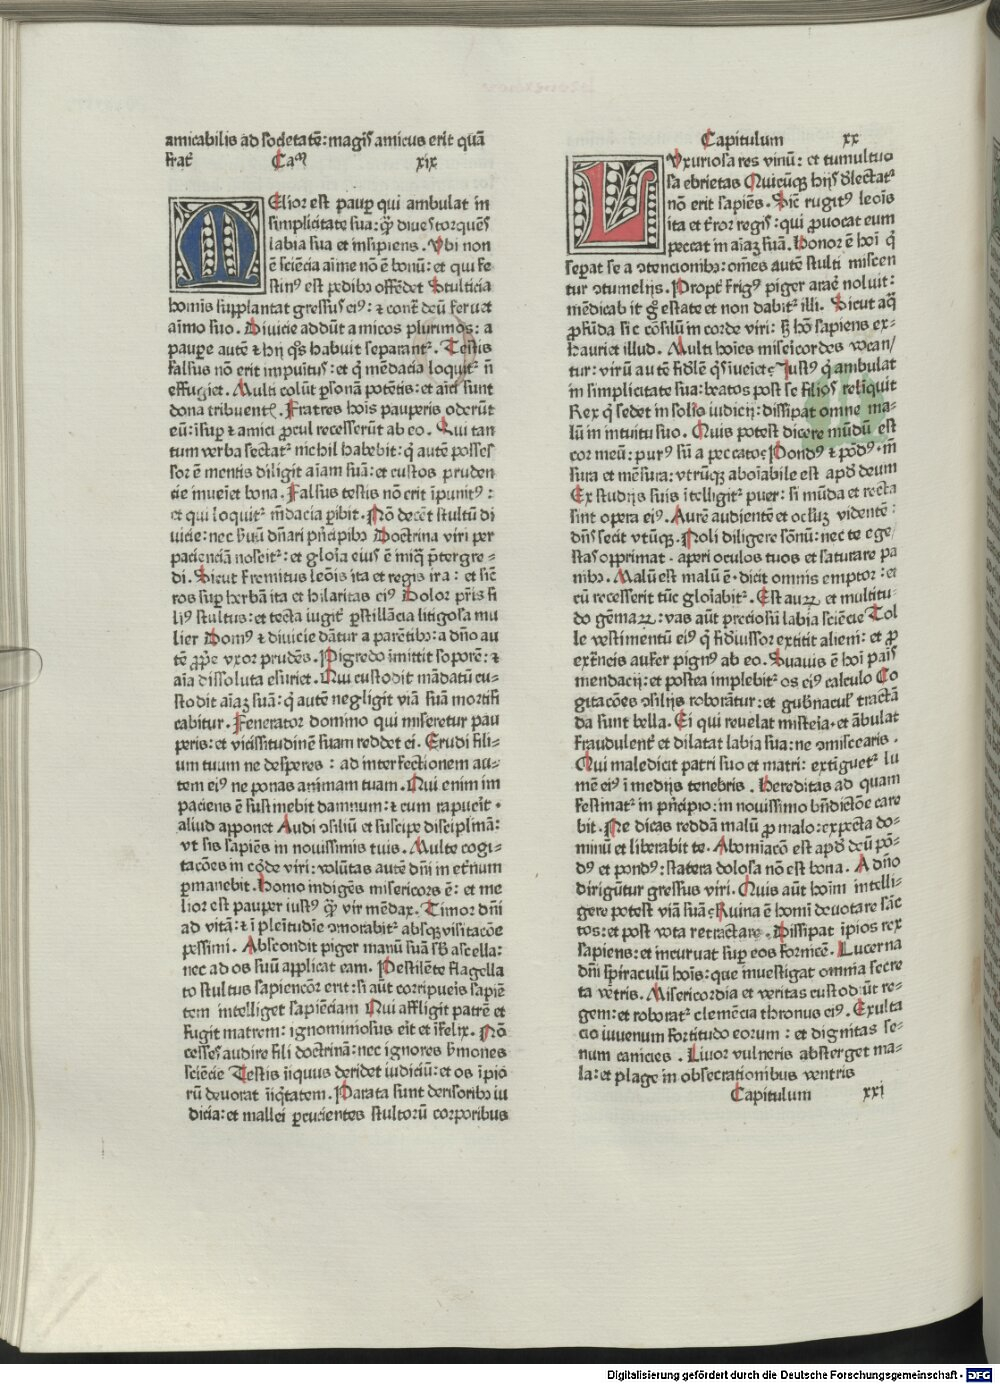 amicabilis ad societatē: magis amicus erit quā
frat̄ Caᵐ xix
MElior est paup̱ qui ambulat in
simplicitate sua: qᷓ diues torquēs
labia sua et insipiens. Vbi non
ē sciēcia aīme nō ē bonū: et qui fe
stinꝰ est pedibꝫ offēdet Stulticia
homīs supplantat gressus eiꝰ: ⁊ contᷓ deū feruet
aīmo suo. Diuicie addūt amicos plurimos: a
paupe autē ⁊ hij qͦs habuit separantᷣ. Testis
falsus nō erit impuītus: et qͥ mēdacia loquitᷣ nō
effugiet. Multi colūt ꝑsonā potētis: et aīci sunt
dona tribuentꝭ. Fratres hoīs pauperis oderūt
eū: īsuꝑ ⁊ amici ꝓcul recesserūt ab eo. Qui tan
tum verba sectatᷣ nichil habebit: qͥ autē posses
sor ē mentis diligit aīam suā: et custos pruden
cie inueīet bona. Falsus testis nō erit īpunitꝰ:
et qui loquitᷣ mēdacia ꝑibit. Nō decēt stultū di
uicie: nec ẜuū dn̄ari pn̄cipibꝫ Doctrina viri per
pacienciā nosciᷣ: et gloīa eius ē inīqͣ p̄tergre-
di. Sicut fremitus leōis ita et regis ira: et sic̄
ros suꝑ herbā ita et hilaritas eiꝰ Dolor pr̄is fi
liꝰ stultus: et tecta iugit̄ ꝑstillācia litigosa mu
lier Domꝰ ⁊ diuicie dātur a parētibꝫ: a dn̄o au
tē ꝓp̄e vxor prudēs. Pigredo īmittit soporē: ⁊
aīa dissoluta esuriet. Qui custodit mādatū cu-
stodit aīaꝫ suā: qͥ autē negligit viā suā mortifi
cabitur. Fenerator domino qui miseretur pau
peris: et vicissitudinē suam reddet ei. Erudi fili-
um tuum ne desperes: ad interfectionem au-
tem eiꝰ ne ponas animam tuam. Qui enim im
paciens ē sustinebit damnum: ⁊ cum rapueīt
aliud apponet Audi ꝯsiliū et suscipe disciplinā:
vt sis sapiēs in nouissimis tuis. Multe cogi-
tacōes in corde viri: volūtas autē dn̄i in et̄num
ꝑmanebit. Homo indigēs misericors ē: et me
lior est pauper iustꝰ qᷓ vir mēdax. Timor dn̄i
ad vitā: ⁊ ī plētudīe ꝯmorabitᷣ absqꝫ visitacōe
pessimi. Abscondit piger manū suā sb̄ ascella:
nec ad os suū applicat eam. Pestilēte flagella
to stultus sapiencōr erit: si aūt corripueis sapiē
tem intelliget sapiēciam Qui affligit patrē et
fugit matrem: ignominiosus eīt et īfelix. Nō
cesses audire fili doctrinā: nec ignores ẜmones
sciēcie Testis īiquus deridet iudiciū: et os īpio
rū deuorat īiqͥtatem. Parata sunt derisoribꝫ iu
dicia: et mallei ꝑcucientes stultorū corporibus
Capitulum xx
LVxuriosa res vinū: et tumultuo
sa ebrietas Quicūqꝫ hijs d̄lectatᷣ
nō erit sapiēs. Sic̄ rugitꝰ leoīs
ita et t̄ror regis: qui ꝓuocat eum
peccat in aīaꝫ suā. Honor ē hoī qͥ
seꝑat se a ꝯtencionibꝫ: om̄es autē stulti miscen
tur ꝯtumelijs. Propt̄ frigꝰ piger arae̅ noluit:
mēdicab it gͦ estate et non dabitᷣ illi. Sicut aqͣ
ꝓfūda sic cōsiliū in corde viri: sꝫ hō sapiens ex-
hauriet illud. Multi hoīes misericordes vocan/
tur: virū autē fidēlē qͥs īueīet Iustꝰ qͥ ambulat
in simplicitate sua: beatos post se filios reliquit
Rex qͥ sedet in solio iudicij: dissipat omne ma-
lū in intuitu suo. Quis potest dicere mūdū est
cor meū: purꝰ sū a peccato Pondꝰ ⁊ pōdꝰ. m̄
sura et mēsura: vtrūqꝫ aboīabile est apd̄ deum
Ex studijs suis ītelligitᷣ puer: si mūda et recta
sint opera eiꝰ. Aurē audientē et oclūꝫ videntē:
dn̄s fecit vtūqꝫ. Noli diligere sōnū: nec te ege/
stas opprimat. aperi oculos tuos et saturare pa
nibꝫ. Malū est malū ē. dicit omnis emptor: et
cū recesserit tūc gloīabitᷣ. Est auꝝ et multitu-
do gēmaꝝ: vas aūt preciosū labia sciēcie Tol
le vestimentū eiꝰ qͥ fid̄iussor extitit alieni: et ꝓ
ext̄neis aufer pignꝰ ab eo. Suauis ē hoī paīs
mendacij: et postea implebitᷣ os eiꝰ calculo Co
gitacōes ꝯsilijs roborātur: et gub̄naculᷤ tractā
da sunt bella. Ei qui reuelat misteia. et ābulat
fraudulent̄ et dilatat labia sua: ne ꝯmiscearis.
Qui maledicit patri suo et matri: extiguetᷣ lu
mē eiꝰ ī medijs tenebris. Hereditas ad quam
festinatᷣ in pn̄cipio: in nouissimo bn̄dictōe care
bit. Ne dicas reddā malū ꝓ malo: expecta do-
minū et liberabit te. Abomīacō est apd̄ deū pō-
dꝰ et pondꝰ: statera dolosa nō est bona. A dn̄o
dirigūtur gressus viri. Quis aūt hoīm intelli-
gere potest viā suā Ruina ē homī deuotare sāc
tos: et post vota retractare. Dissipat īpios rex
sapiens: et incuruat suꝑ eos fornicē. Lucerna
dn̄i spiraculū hoīs: que inuestigat omnia secre
ta vētris. Misericordia et veritas custodiūt re-
gem: et roboratᷣ clemēcia thronus eiꝰ. Exulta
cio iuuenum fortitudo eorum: et dignitas se-
num canicies. Liuor vulneris absterget ma-
la: et plage in obsecrationibus ventris
Capitulum xxi
Digitalisierung gefördert durch die Deutsche Forschungsgemeinschaft - DFG